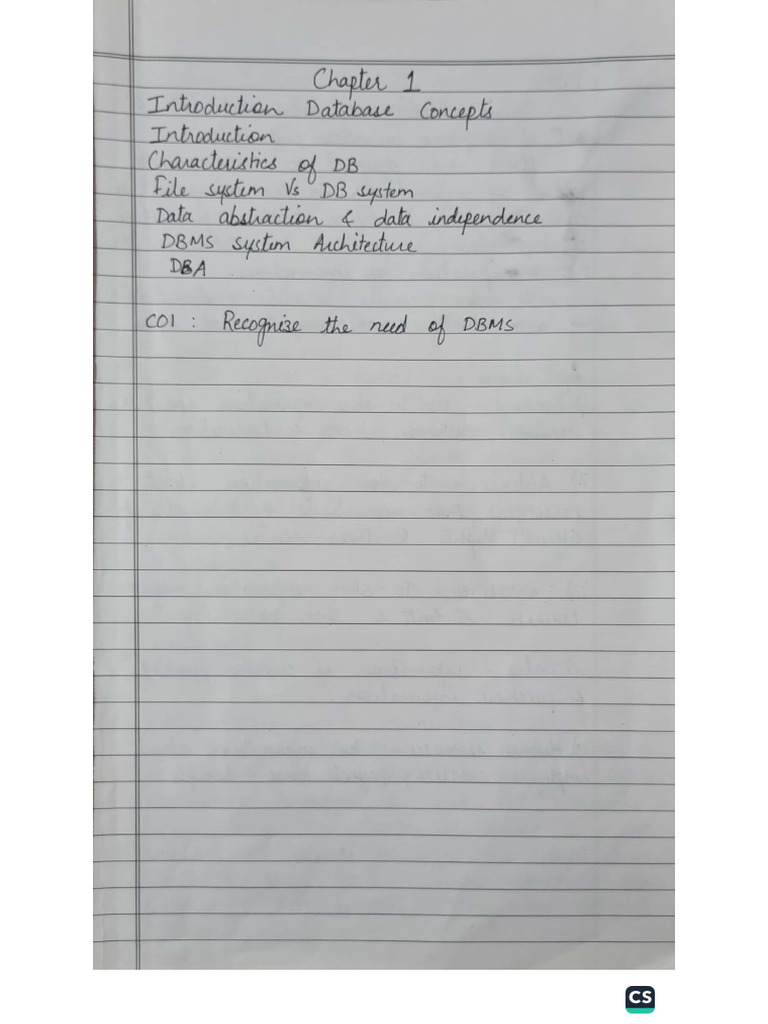 Chapter 1
Introduction Database Concepts
Introduction
Characteristics of DB
File system Vs DB system
Data abstraction & data independence
DBMS system Architecture
DBA
CO1 : Recognise the need of DBMS
CS